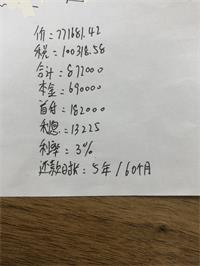 价:771681.42
税:100318.58
合计:872000
本金:690000
首付:182000
利息:13225
利率:3%
还款日期:5年/60个月